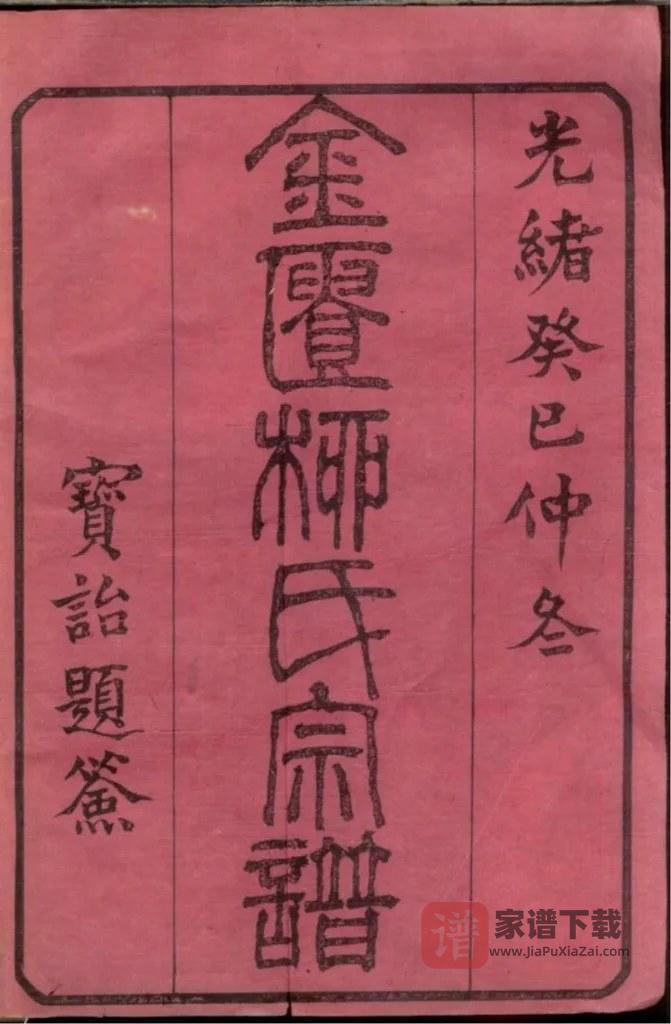 光緒癸巳仲冬
金匱柳氏宗譜
寶詒題簽
家谱下载
www.JiaPuXiaZai.com
谱